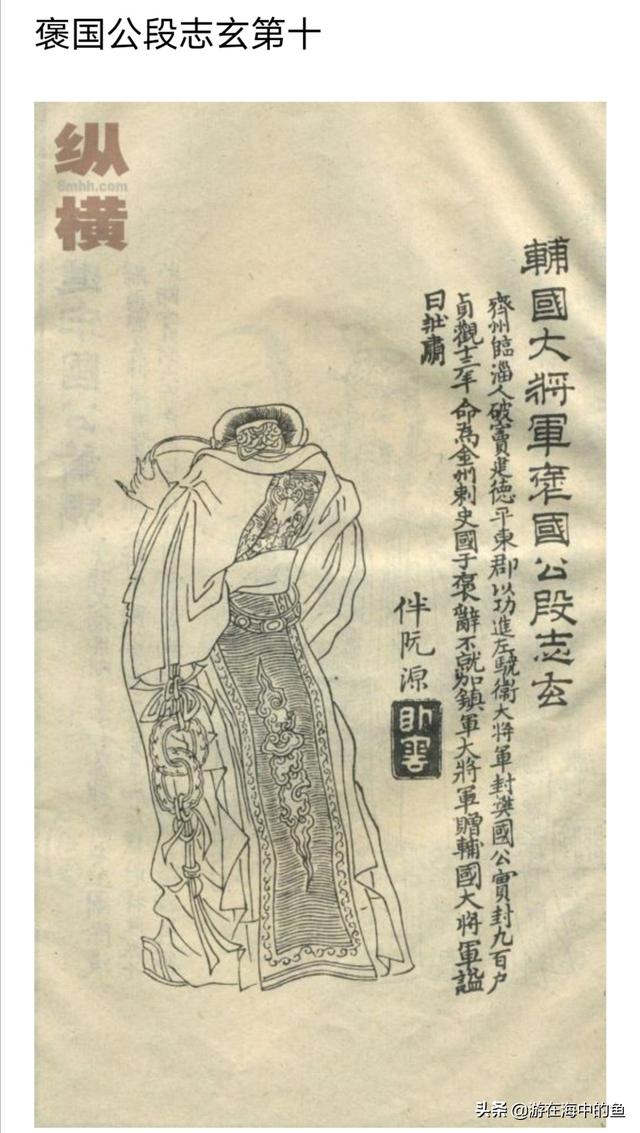 褒国公段志玄第十
纵横
8mhh.com
輔國大將軍褒國公段志玄
齊州臨淄人破竇建德平東郡以功進左驍衛大將軍封樊國公實封九百戶
貞觀十三年命為金州刺史國于褒辭不就加鎮軍大將軍贈輔國大將軍謚
曰壯肅
伴阮源
头条 @游在海中的鱼